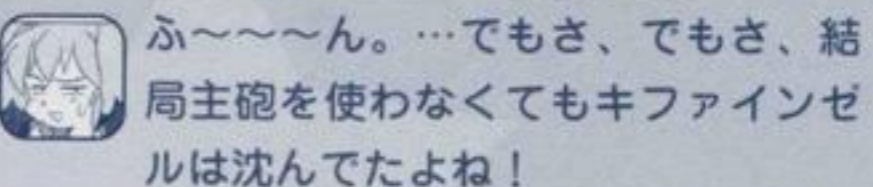 ふ～～～ん。…でもさ、でもさ、結
局主砲を使わなくてもキファインゼ
ルは沈んでたよね！